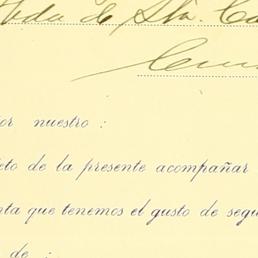 Vda de Sta. Ca
or nuestro :
eto de la presente acompañar
nta que tenemos el gusto de segu
de :